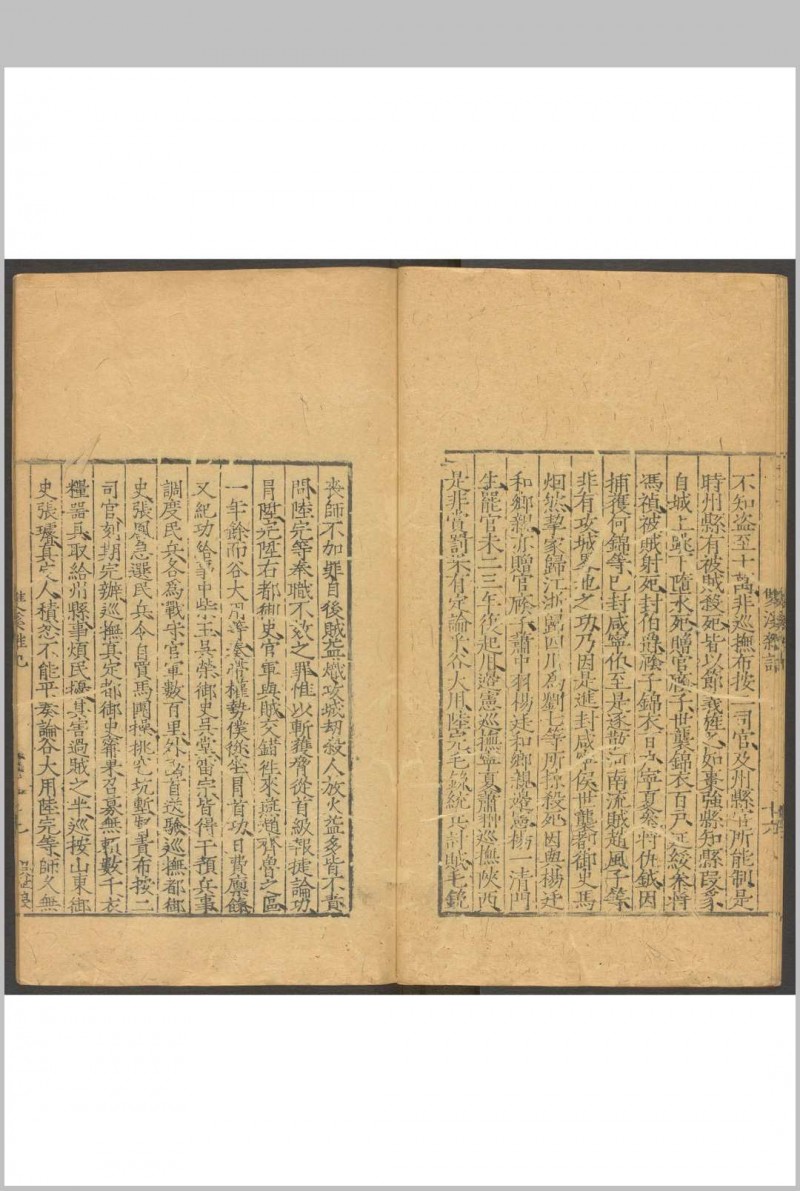 不知盗至十萬非巡撫布按二司官及州縣官所能制是
時州縣有被賊殺死皆以節義旌之如棗強縣知縣段豸
自城上跳下墮水死贈官廕子世襲錦衣百戶延綏叅將
馮禎被賊射死封伯爵廕子錦衣百戶寧夏叅將仇鉞因
捕獲何錦等已封咸寧伯至是逐散河南流賊趙風子等
非有攻城畧地之功乃因是進封咸寧侯世襲都御史馬
炯然挈家歸江浙歸四川為劉七等所掠殺死因與楊廷
和鄉親亦贈官廕子蕭翀楊廷和鄉親邊憲楊一清門
生罷官未二三年後起用邊憲巡撫寧夏蕭翀巡撫陜西
是非賞罰未有定論乎谷大用陸完毛銳統兵討賊毛銳
喪師不加罪自後賊益熾攻城刧殺人放火益多皆不責
問陸完等奉職不效之罪惟以斬獲脅從首級報捷論功
冐陞完陞右都御史官軍與賊交錯徃來燕趙齊魯之區
一年餘而谷大用等湊帶權勢僕從坐冐首功日費廩餼
又紀功給事中柴玉吳榮御史吳堂雷宗皆得干預兵事
調度民兵各為戰守官軍數百里外函首送驗巡撫都御
史張鳳急選民兵令自買馬團操挑乾坑塹甲責布按二
司官刻期完辦巡撫真定都御史蕭果召募無賴數千衣
糧器具取給州縣事煩民擾其害過賊之半巡按山東御
史張璿真定人積忿不能平奏論谷大用陸完等師久無
雙溪雜記
十六